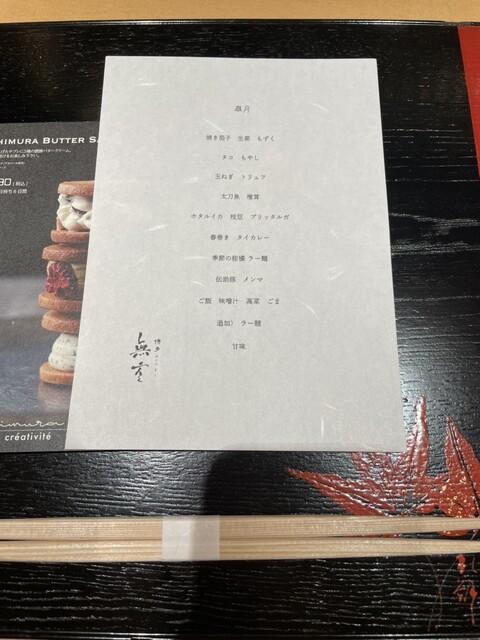 皐月
焼き茄子 生姜 もずく
タコ もやし
玉ねぎ トリュフ
太刀魚 椎茸
ホタルイカ 枝豆 ブリックルガ
春巻き タイカレー
季節の柑橘 ラー麺
伝助豚 メンマ
ご飯 味噌汁 高菜 ごま
追加） ラー麺
甘味
博多
HIMURA BUTTER SA
80（税込）
imura
créativité